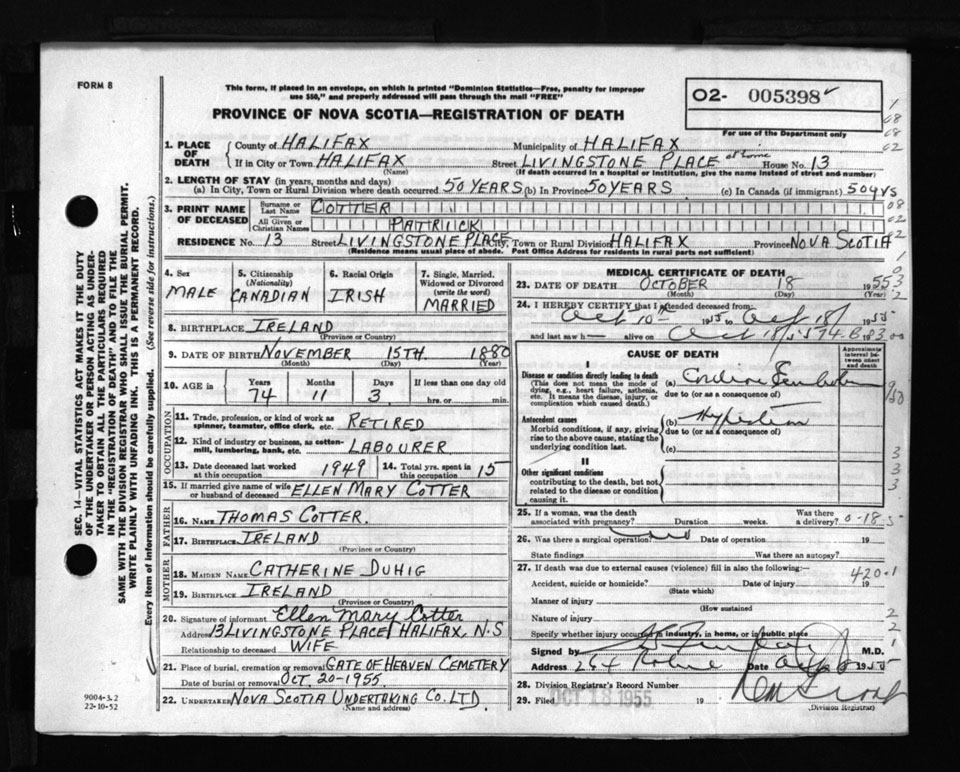 FORM 8
This form, if placed in an envelope, on which is printed "Dominion Statistics—Free, penalty for improper
use $50," and properly addressed will pass through the mail "FREE"
PROVINCE OF NOVA SCOTIA—REGISTRATION OF DEATH
02- 005398
For use of the Department only
1. PLACE OF DEATH
County of HALIFAX Municipality of HALIFAX
If in City or Town HALIFAX Street LIVINGSTONE PLACE at home House No. 13
(Name) (If death occurred in a hospital or institution, give the name instead of street)
2. LENGTH OF STAY (in years, months and days)
(a) In City, Town or Rural Division where death occurred 50 YEARS (b) In Province 50 YEARS (c) In Canada (if immigrant) 50 yrs
3. PRINT NAME OF DECEASED
Surname or Last Name COTTER
All Given or Christian Names PATRICK
RESIDENCE No. 13 Street LIVINGSTONE PLACE City, Town or Rural Division HALIFAX Province NOVA SCOTIA
(Residence means usual place of abode. Post Office Address for residents in rural parts not sufficient)
4. Sex MALE
5. Citizenship (Nationality) CANADIAN
6. Racial Origin IRISH
7. Single, Married, Widowed or Divorced (write the word) MARRIED
8. BIRTHPLACE IRELAND
(Province or Country)
9. DATE OF BIRTH NOVEMBER 15TH 1880
(Month) (Day) (Year)
10. AGE in Years 74 Months 11 Days 3 If less than one day old hrs. or min.
OCCUPATION
11. Trade, profession, or kind of work as spinner, teamster, office clerk, etc. RETIRED
12. Kind of industry or business, as cotton-mill, lumbering, bank, etc. LABOURER
13. Date deceased last worked at this occupation 1949 14. Total yrs. spent in this occupation 15
15. If married give name of wife or husband of deceased ELLEN MARY COTTER
FATHER
16. NAME THOMAS COTTER.
17. BIRTHPLACE IRELAND
(Province or Country)
MOTHER
18. MAIDEN NAME CATHERINE DUHIG
19. BIRTHPLACE IRELAND
(Province or Country)
20. Signature of informant Ellen Mary Cotter
Address 13 LIVINGSTONE PLACE HALIFAX, N.S
Relationship to deceased WIFE
21. Place of burial, cremation or removal GATE OF HEAVEN CEMETERY
Date of burial or removal OCT. 20-1955
22. UNDERTAKER NOVA SCOTIA UNDERTAKING CO. LTD.
(Name and address)
MEDICAL CERTIFICATE OF DEATH
23. DATE OF DEATH OCTOBER 18 1955
(Month) (Day) (Year)
24. I HEREBY CERTIFY that I attended deceased from:
Oct 10th 1955 to Oct 18 1955
and last saw h alive on Oct 18
CAUSE OF DEATH
Approximate interval between onset and death
I
Disease or condition directly leading to death
(This does not mean the mode of dying, e.g., heart failure, asthenia, etc. It means the disease, injury, or complication which caused death.)
(a)
due to (or as a consequence of)
Antecedent causes
Morbid conditions, if any, giving rise to the above cause, stating the underlying condition last.
(b)
due to (or as a consequence of)
(c)
II
Other significant conditions
contributing to the death, but not related to the disease or condition causing it.
25. If a woman, was the death associated with pregnancy? Duration weeks. Was there a delivery? 0-18-5
26. Was there a surgical operation? no Date of operation 19
State findings Was there an autopsy?
27. If death was due to external causes (violence) fill in also the following:— 420.1
Accident, suicide or homicide? Date of injury 19
(State which)
Manner of injury
(How sustained
Nature of injury
Specify whether injury occurred in industry, in home, or in public place
Signed by M.D.
Address 264 Date Oct 1955
28. Division Registrar's Record Number
29. Filed OCT 18 1955 19
(Division Registrar)
SEC. 14—VITAL STATISTICS ACT MAKES IT THE DUTY
OF THE UNDERTAKER OR PERSON ACTING AS UNDER-
TAKER TO OBTAIN ALL THE PARTICULARS REQUIRED
IN THE "REGISTRATION OF DEATH" AND TO FILE THE
SAME WITH THE DIVISION REGISTRAR WHO SHALL ISSUE THE BURIAL PERMIT.
WRITE PLAINLY WITH UNFADING INK. THIS IS A PERMANENT RECORD.
Every item of information should be carefully supplied. (See reverse side for instructions.)
9004-3.2
22-10-52